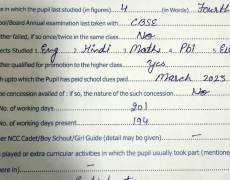 s in which the pupil last studied (in figures) 4 (in Words) Fourth
ool/Board Annual examination last taken with CBSE
ther failed, if so once/twice in the same class No
ects Studied 1. Eng , Hindi , Maths , Pbi 5. E
ther qualified for promotion to the higher class Yes
th upto which the Pupil has paid school dues paid. March, 2025
e concession availed of : if so, the nature of the such concession. No
No. of working days 201
No. of working days present 194
er NCC Cadet/Boy Schout/Girl Guide (detail may be given) –
s played or extra curricular activities in which the pupil usually took part (mentione
here in) –